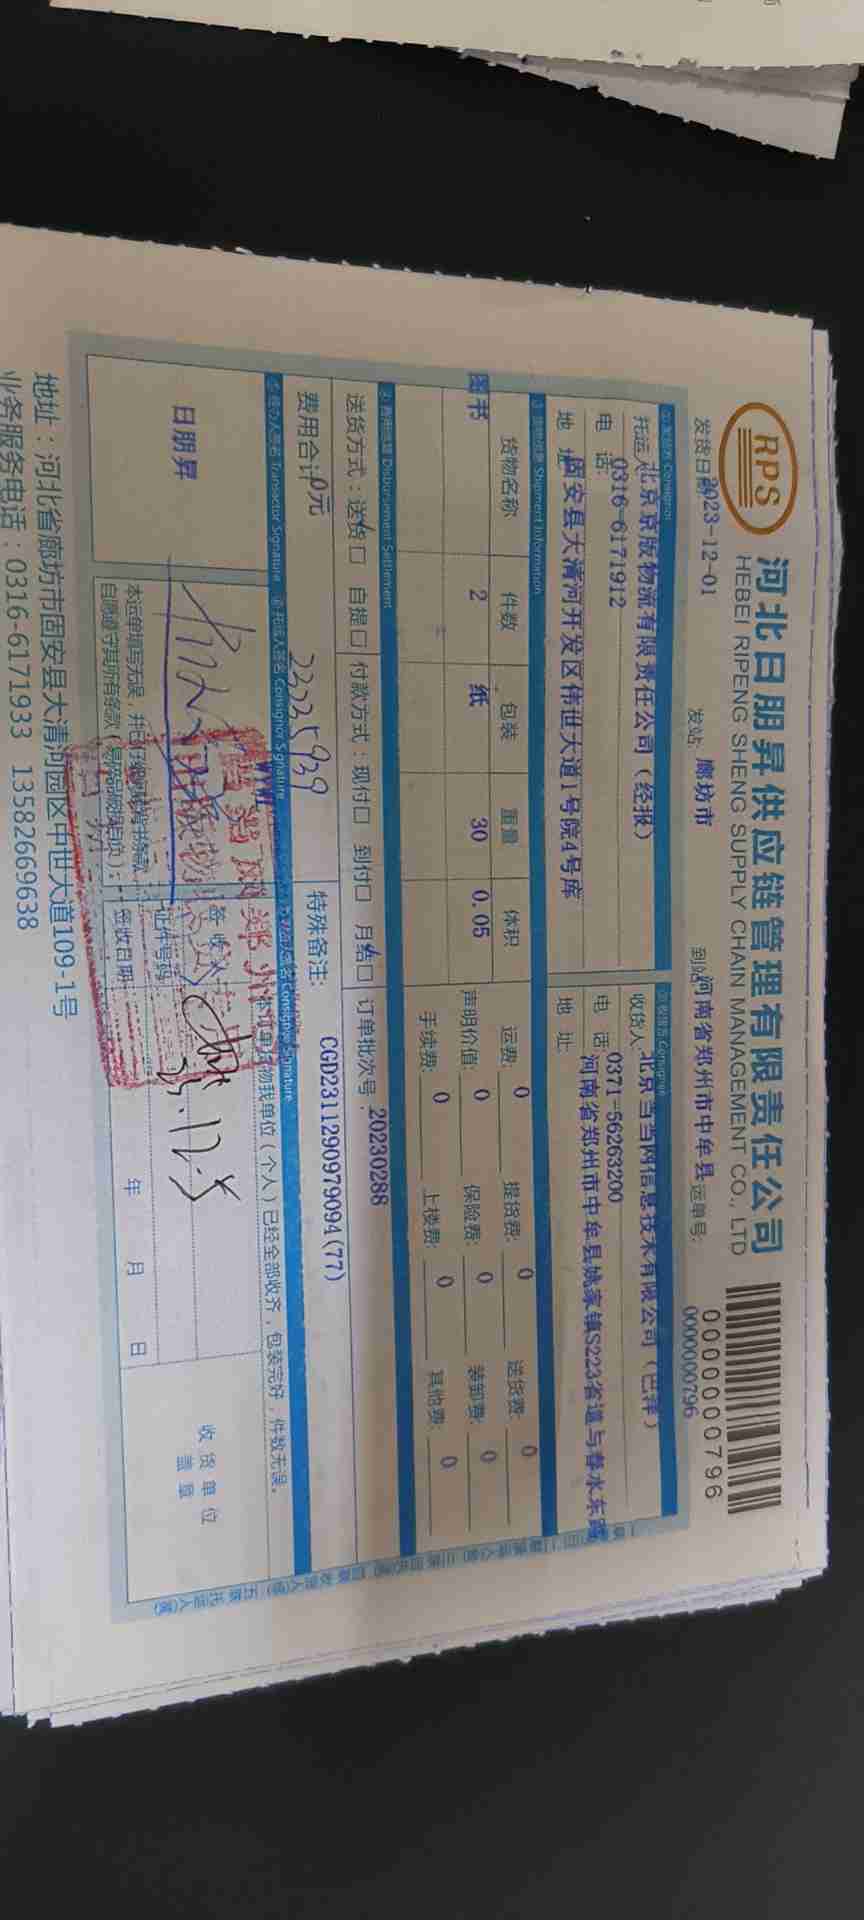 RPS
河北日朋昇供应链管理有限责任公司
HEBEI RIPENG SHENG SUPPLY CHAIN MANAGEMENT CO., LTD
0000000796
发货日期 2023-12-01 发站: 廊坊市 到站 河南省郑州市中牟县 运单号: 0000000796
Consignor
托运人 北京京版物流有限责任公司(经报)
电 话: 0316-6171912
地 址 固安县大清河开发区伟世大道1号院4号库
Consignee
收货人 北京当当网信息技术有限公司(巴洋)
电 话 0371-56263200
地 址: 河南省郑州市中牟县姚家镇S223省道与春水东路
货物信息 Shipment Information
货物名称 件数 包装 重量 体积
图书 2 纸 30 0.05
运费: 0 提货费: 0 送货费: 0
声明价值: 0 保险费: 0 装卸费: 0
手续费: 0 上楼费: 0 其他费: 0
费用结算 Disbursement Settlement
送货方式:送货□ 自提□ 付款方式:现付□ 到付□ 月结□ 订单批次号: 20230288
费用合计 0元
2325939
特殊备注: CGD2311290979094(77)
经办人签名 Transactor Signature
托运人签名 Consignor Signature
收货人签名 Consignee Signature
日朋昇
本运单填写无误,并已仔细阅读背书条款,
自愿遵守其所有条款(易碎品破损自负):
本订单货物我单位(个人)已经全部收齐,包装完好,件数无误。
签 收 人
证件号码
签收日期:
12.5
年 月 日
收货单位
盖章
地址:河北省廊坊市固安县大清河园区中世大道109-1号
业务服务电话:0316-6171933 13582669638